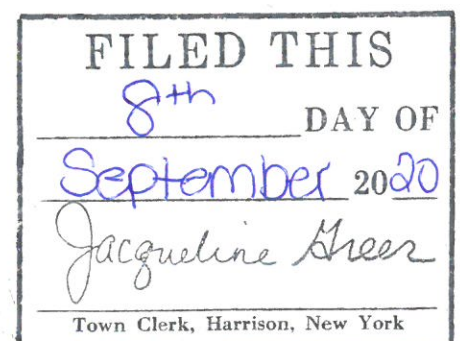 FILED THIS
8th DAY OF
September 2020
Jacqueline Greer
Town Clerk, Harrison, New York